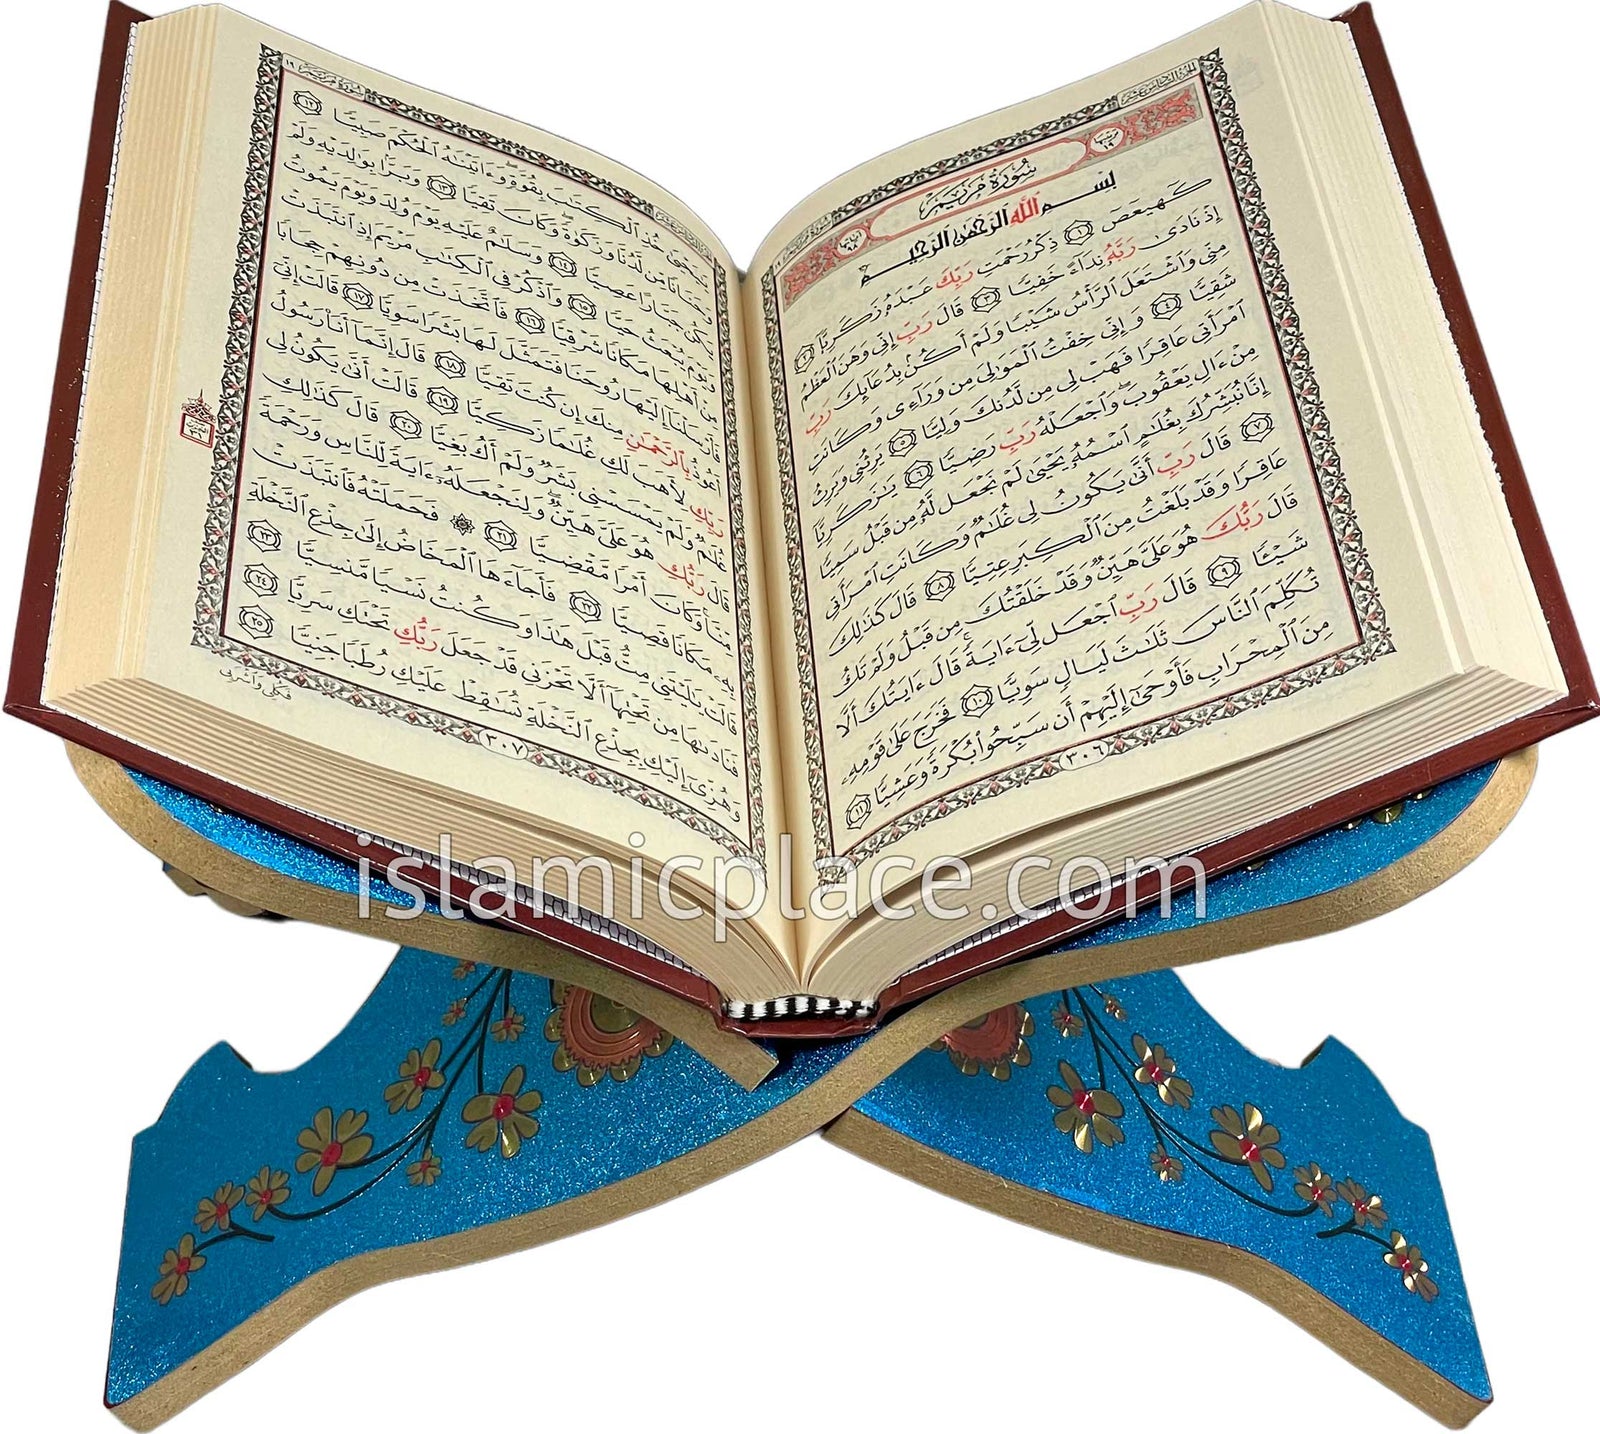 الجزء السادس عشر
ترتيبها ١٩ سُورَةُ مَرْيَمَ آياتها ٩٨
بِسْمِ ٱللَّهِ ٱلرَّحْمَٰنِ ٱلرَّحِيمِ
كٓهيعٓصٓ ١ ذِكْرُ رَحْمَتِ رَبِّكَ عَبْدَهُۥ زَكَرِيَّآ ٢
إِذْ نَادَىٰ رَبَّهُۥ نِدَآءً خَفِيًّا ٣ قَالَ رَبِّ إِنِّى وَهَنَ ٱلْعَظْمُ
مِنِّى وَٱشْتَعَلَ ٱلرَّأْسُ شَيْبًا وَلَمْ أَكُنۢ بِدُعَآئِكَ رَبِّ
شَقِيًّا ٤ وَإِنِّى خِفْتُ ٱلْمَوَٰلِىَ مِن وَرَآءِى وَكَانَتِ
ٱمْرَأَتِى عَاقِرًا فَهَبْ لِى مِن لَّدُنكَ وَلِيًّا ٥ يَرِثُنِى وَيَرِثُ
مِنْ ءَالِ يَعْقُوبَ ۖ وَٱجْعَلْهُ رَبِّ رَضِيًّا ٦ يَٰزَكَرِيَّآ
إِنَّا نُبَشِّرُكَ بِغُلَٰمٍ ٱسْمُهُۥ يَحْيَىٰ لَمْ نَجْعَل لَّهُۥ مِن قَبْلُ سَمِيًّا
٧ قَالَ رَبِّ أَنَّىٰ يَكُونُ لِى غُلَٰمٌ وَكَانَتِ ٱمْرَأَتِى
عَاقِرًا وَقَدْ بَلَغْتُ مِنَ ٱلْكِبَرِ عِتِيًّا ٨ قَالَ كَذَٰلِكَ
قَالَ رَبُّكَ هُوَ عَلَىَّ هَيِّنٌ وَقَدْ خَلَقْتُكَ مِن قَبْلُ وَلَمْ تَكُ
شَيْـًٔا ٩ قَالَ رَبِّ ٱجْعَل لِّىٓ ءَايَةً ۚ قَالَ ءَايَتُكَ أَلَّا
تُكَلِّمَ ٱلنَّاسَ ثَلَٰثَ لَيَالٍ سَوِيًّا ١٠ فَخَرَجَ عَلَىٰ قَوْمِهِۦ
مِنَ ٱلْمِحْرَابِ فَأَوْحَىٰٓ إِلَيْهِمْ أَن سَبِّحُوا۟ بُكْرَةً وَعَشِيًّا ١١
٣٠٦
سُورَةُ مَرْيَمَ ١٩
يَٰيَحْيَىٰ خُذِ ٱلْكِتَٰبَ بِقُوَّةٍ ۖ وَءَاتَيْنَٰهُ ٱلْحُكْمَ صَبِيًّا ١٢
وَحَنَانًا مِّن لَّدُنَّا وَزَكَوٰةً ۖ وَكَانَ تَقِيًّا ١٣ وَبَرًّۢا بِوَٰلِدَيْهِ وَلَمْ
يَكُن جَبَّارًا عَصِيًّا ١٤ وَسَلَٰمٌ عَلَيْهِ يَوْمَ وُلِدَ وَيَوْمَ يَمُوتُ
وَيَوْمَ يُبْعَثُ حَيًّا ١٥ وَٱذْكُرْ فِى ٱلْكِتَٰبِ مَرْيَمَ إِذِ ٱنتَبَذَتْ
مِنْ أَهْلِهَا مَكَانًا شَرْقِيًّا ١٦ فَٱتَّخَذَتْ مِن دُونِهِمْ حِجَابًا
فَأَرْسَلْنَآ إِلَيْهَا رُوحَنَا فَتَمَثَّلَ لَهَا بَشَرًا سَوِيًّا ١٧ قَالَتْ إِنِّىٓ
أَعُوذُ بِٱلرَّحْمَٰنِ مِنكَ إِن كُنتَ تَقِيًّا ١٨ قَالَ إِنَّمَآ أَنَا۠ رَسُولُ
رَبِّكِ لِأَهَبَ لَكِ غُلَٰمًا زَكِيًّا ١٩ قَالَتْ أَنَّىٰ يَكُونُ لِى
غُلَٰمٌ وَلَمْ يَمْسَسْنِى بَشَرٌ وَلَمْ أَكُ بَغِيًّا ٢٠ قَالَ كَذَٰلِكِ
قَالَ رَبُّكِ هُوَ عَلَىَّ هَيِّنٌ ۖ وَلِنَجْعَلَهُۥٓ ءَايَةً لِّلنَّاسِ وَرَحْمَةً
مِّنَّا ۚ وَكَانَ أَمْرًا مَّقْضِيًّا ٢١ ۞ فَحَمَلَتْهُ فَٱنتَبَذَتْ
بِهِۦ مَكَانًا قَصِيًّا ٢٢ فَأَجَآءَهَا ٱلْمَخَاضُ إِلَىٰ جِذْعِ ٱلنَّخْلَةِ
قَالَتْ يَٰلَيْتَنِى مِتُّ قَبْلَ هَٰذَا وَكُنتُ نَسْيًا مَّنسِيًّا ٢٣
فَنَادَىٰهَا مِن تَحْتِهَآ أَلَّا تَحْزَنِى قَدْ جَعَلَ رَبُّكِ تَحْتَكِ سَرِيًّا ٢٤
وَهُزِّىٓ إِلَيْكِ بِجِذْعِ ٱلنَّخْلَةِ تُسَٰقِطْ عَلَيْكِ رُطَبًا جَنِيًّا ٢٥
فَكُلِى وَٱشْرَبِى
٣٠٧
islamicplace.com